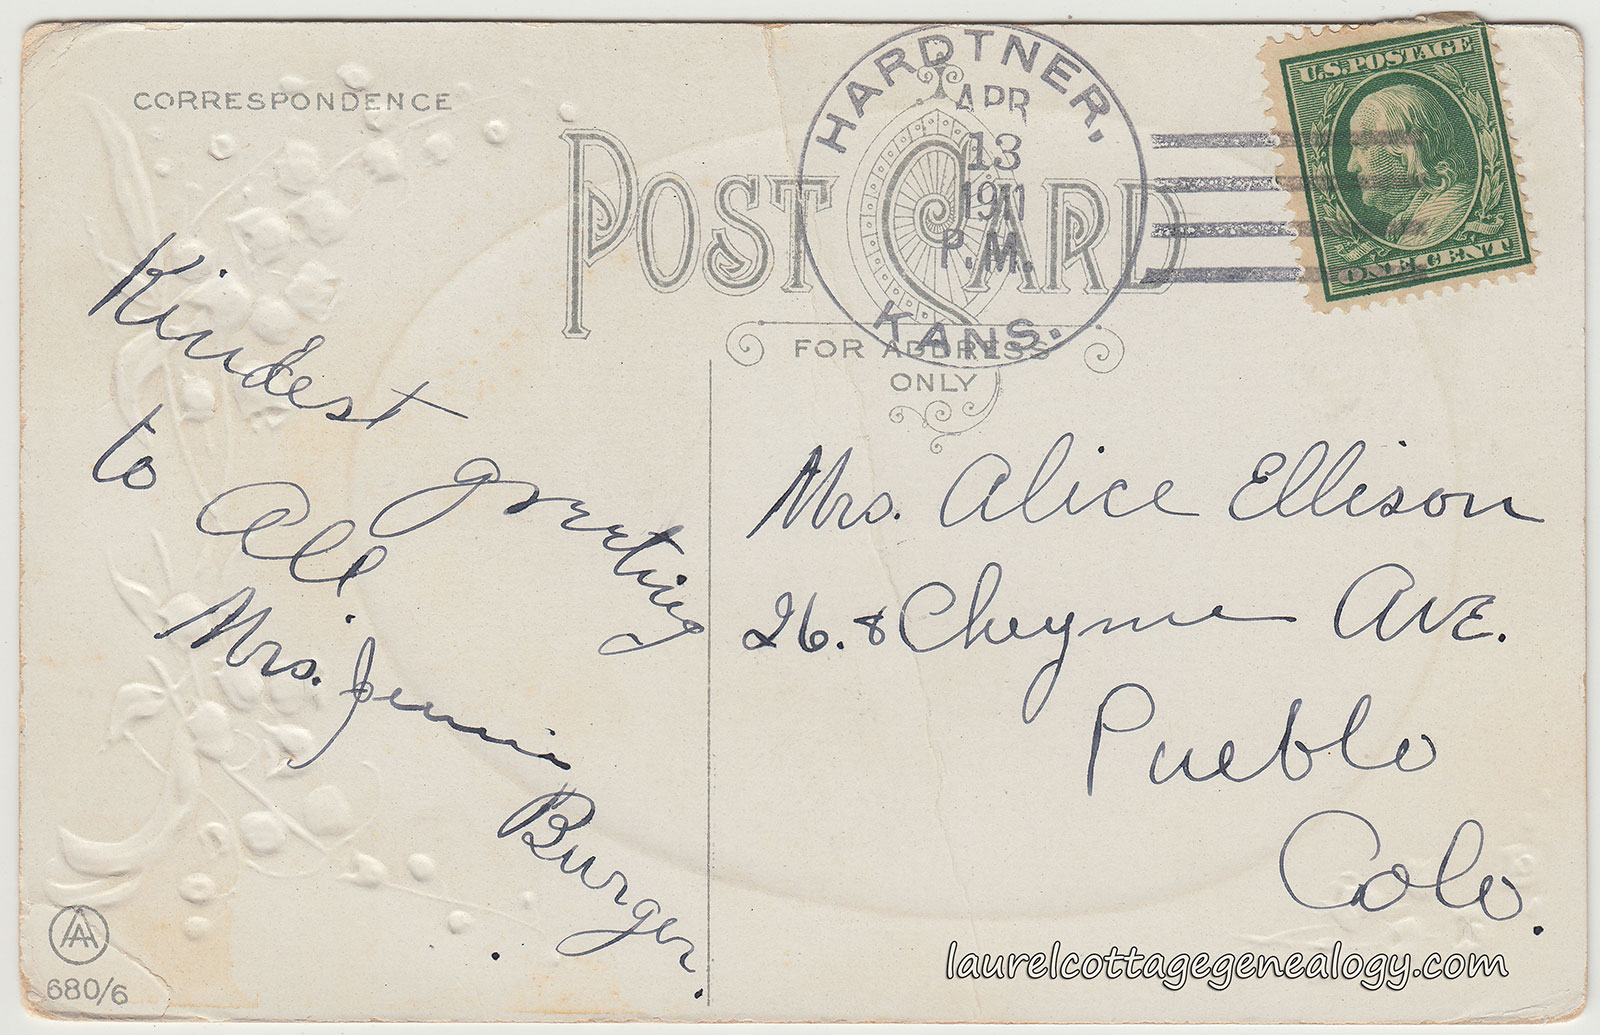 CORRESPONDENCE
POST CARD
FOR ADDRESS
ONLY
HARDTNER,
APR
13
1911
P.M.
KANS.
U.S. POSTAGE
ONE CENT
Kindest greeting
to All.
Mrs. Jennie
Burger.
Mrs. Alice Ellison
26.8 Cheyenne AVE.
Pueblo
Colo.
AA
680/6
laurelcottagegenealogy.com